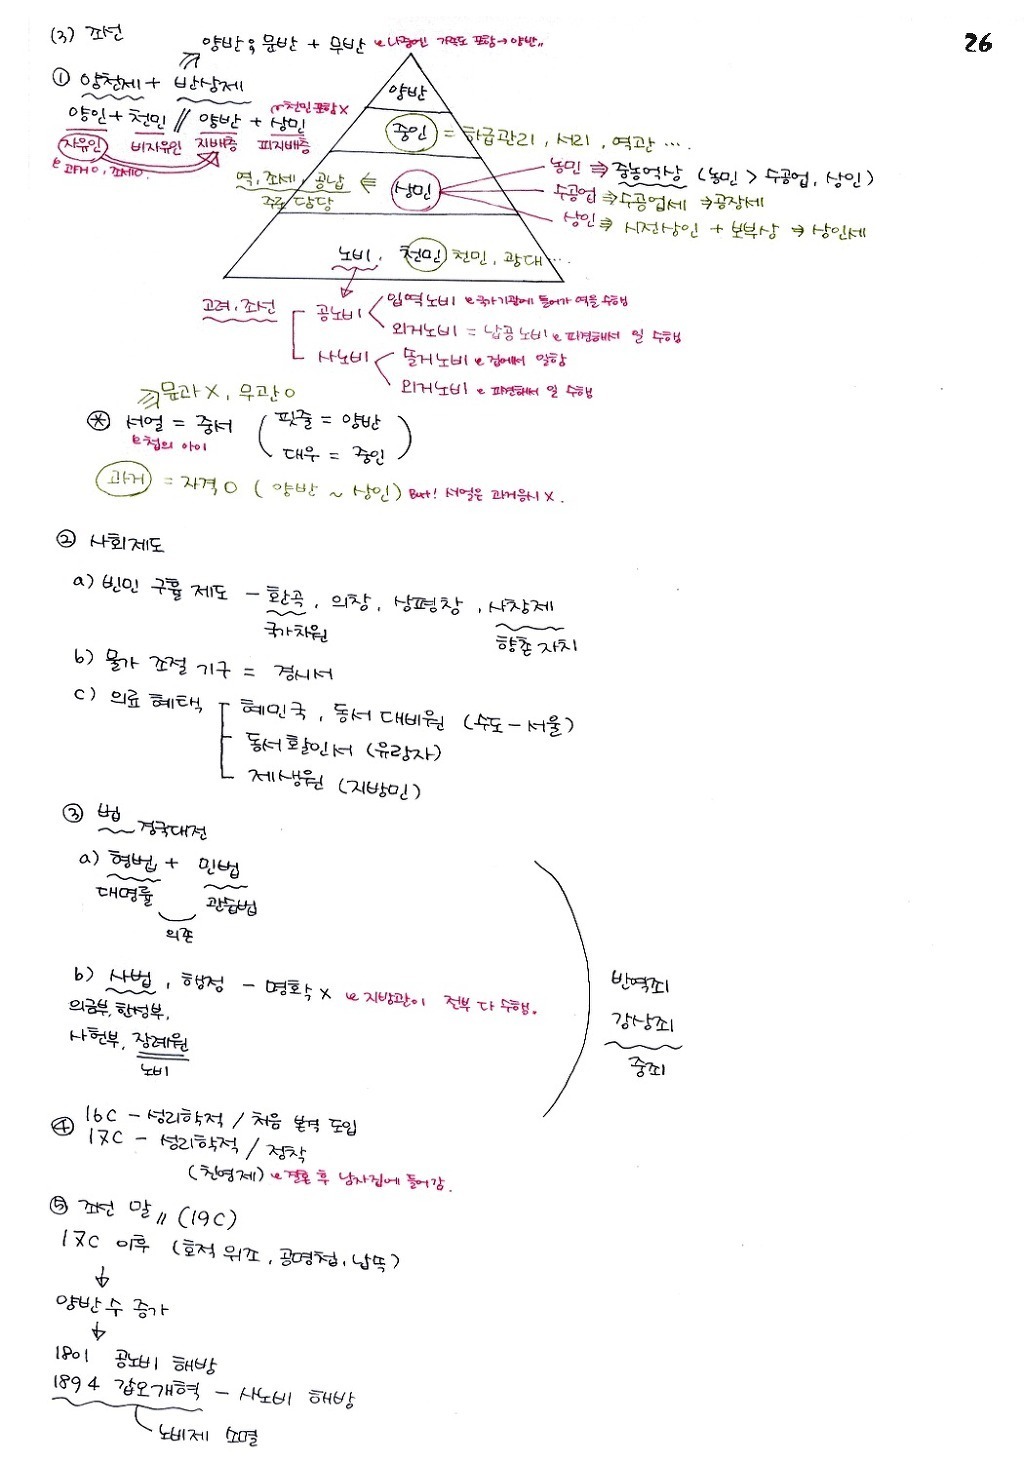 (3) 조선
26
양반; 문반 + 무반 나중에 가족도 포함→양반〃
① 양천제 + 반상제
천민포함X
양인 + 천민 // 양반 + 상민
자유인 비자유인 지배층 피지배층
과거O, 조세O.
양반
중인 = 하급관리, 서리, 역관 ....
역, 조세, 공납 ⇐ 상민
주로 담당
농민 ⇒ 중농억상 (농민 > 수공업, 상인)
수공업 ⇒ 수공업세 ⇒ 공장세
상인 ⇒ 시전상인 + 보부상 ⇒ 상인세
노비, 천민 천민, 광대...
고려, 조선
공노비
입역노비 국가기관에 들어가 역을 수행
외거노비 = 납공노비 파견해서 일 수행
사노비
솔거노비 집에서 일함
외거노비 파견해서 일 수행
⇒ 문과 X, 무관 O
* 서얼 = 중서 ( 핏줄 = 양반
첩의 아이
대우 = 중인 )
과거 = 자격 O ( 양반 ~ 상인 ) But! 서얼은 과거응시 X.
② 사회제도
a) 빈민 구휼 제도 - 환곡, 의창, 상평창, 사창제
국가차원 향촌 자치
b) 물가 조절 기구 = 경시서
c) 의료 혜택
혜민국, 동서 대비원 (수도-서울)
동서활인서 (유랑자)
제생원 (지방민)
③ 법
경국대전
a) 형법 + 민법
대명률 관습법
의존
b) 사법, 행정 - 명확 X 지방관이 전부 다 수행.
의금부, 한성부,
사헌부, 장례원
노비
반역죄
강상죄
중죄
④ 16C - 성리학적 / 처음 본격 도입
17C - 성리학적 / 정착
(친영제) 결혼 후 남자집에 들어감.
⑤ 조선 말〃 (19C)
17C 이후 (호적 위조, 공명첩, 납속)
↓
양반 수 증가
↓
1801 공노비 해방
1894 갑오개혁 - 사노비 해방
노비제 소멸